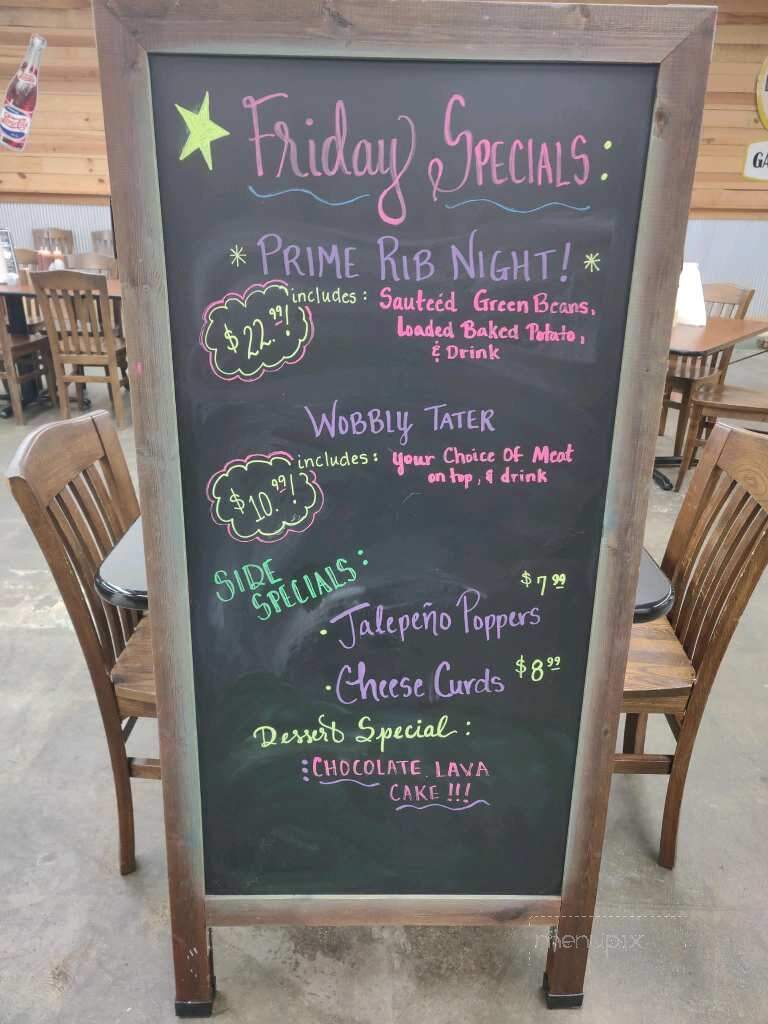 Friday Specials:
* Prime Rib Night! *
$22.99! includes: Sauteéd Green Beans,
Loaded Baked Potato,
& Drink
Wobbly Tater
$10.99! includes: your Choice Of Meat
on top, & drink
Side
Specials:
$7.99
• Jalepeño Poppers
• Cheese Curds $8.99
Dessert Special:
Chocolate Lava
Cake!!!
GA
menupix